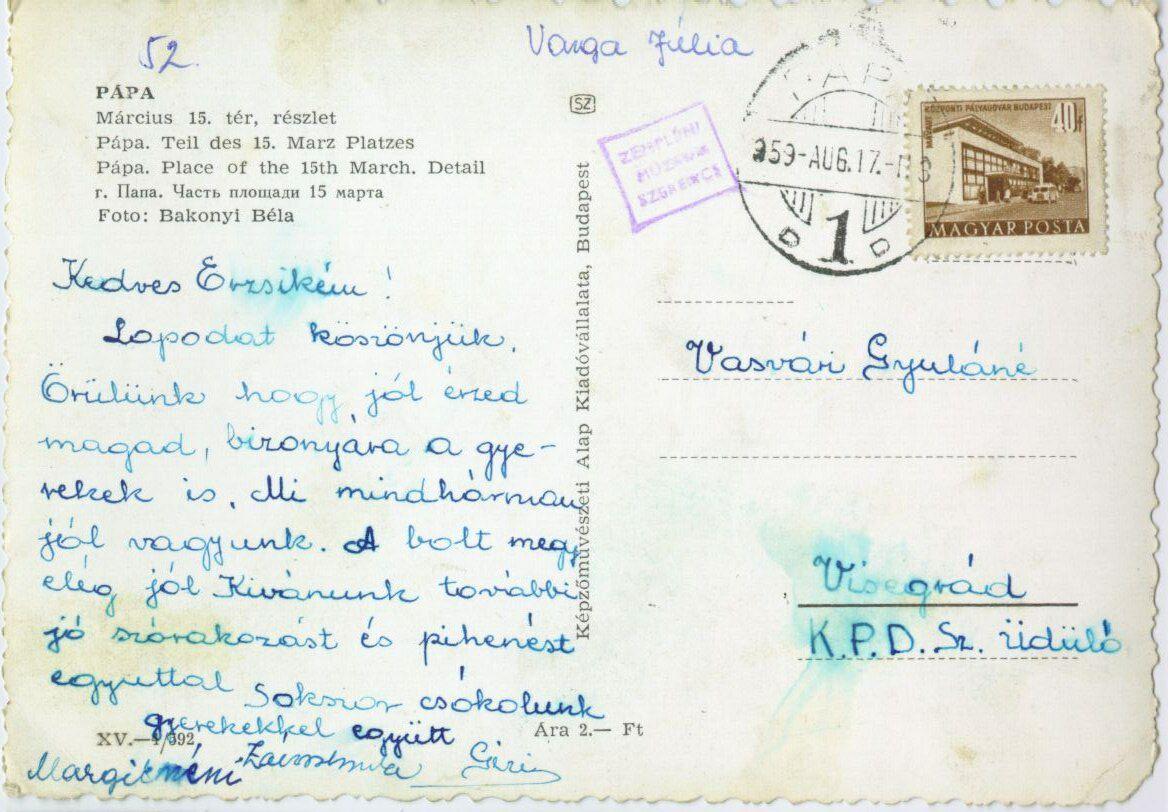 52.
Varga Júlia
PÁPA
Március 15. tér, részlet
Pápa. Teil des 15. Marz Platzes
Pápa. Place of the 15th March. Detail
г. Папа. Часть площади 15 марта
Foto: Bakonyi Béla
Kedves Erzsikém!
Lapodat köszönjük.
Örülünk hogy jól érzed
magad, bizonyára a gye-
rekek is. Mi mindhárman
jól vagyunk. A bolt megy
elég jól Kivánunk további
jó szórakozást és pihenést
egyuttal Sokszor csókolunk
gyerekekkel együtt
XV.—1/592
Margitnéni Gizi
Ára 2.— Ft
SZ
Képzőművészeti Alap Kiadóvállalata, Budapest
ZEMPLÉNI
MÚZEUM
SZERENCS
PÁPA
959-AUG.17.
1
D D
MAGYAR KÖZPONTI PÁLYAUDVAR BUDAPEST
40f
MAGYAR POSTA
Vasvári Gyuláné
Visegrád
K.P.D.Sz. üdülő